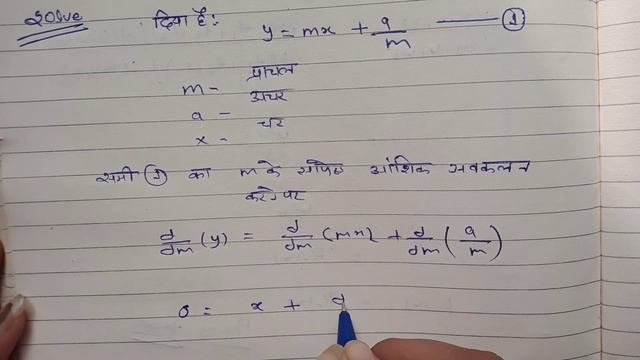 Solve दिया है: y = mx + a/m —— ①
m - प्राचल
a - अचर
x - चर
समी ① का m के सापेक्ष आंशिक अवकलन
करने पर
d/dm (y) = d/dm (mx) + d/dm (a/m)
0 = x + d